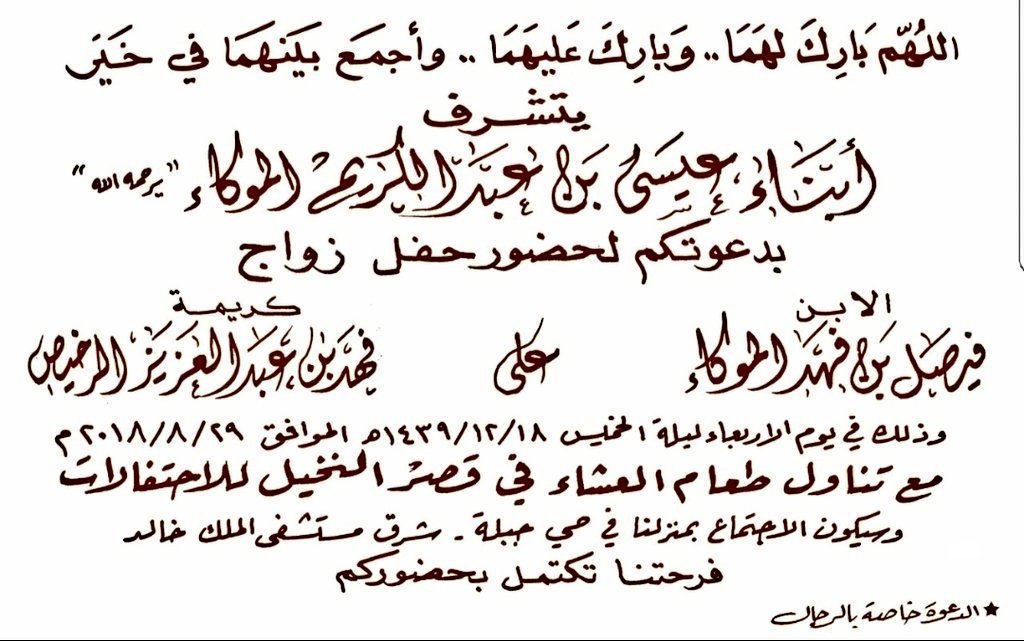 اللهُم بَارِكَ لهَمَا .. وَبارِكَ عَليهَمَا .. وأجمَع بيَنهَمَا في خَيَر
يتشرف
أبنَاء عيسَى بَن عبَد الكريم الموكاء "يرحمه الله"
بدعوتكم لحضور حفل زواج
الابن كريمة
فيصَل بَن فهَد الموكاء على فهَد بَن عبَد العزَيز الرخيص
وذلك في يوم الاربعاء ليلة الخميس ١٤٣٩/١٢/١٨هـ الموافق ٢٠١٨/٨/٢٩م
مع تناول طعام العشاء في قصر النخيل للاحتفالات
وسيكون الاجتماع بمنزلنا في حي جبلة - شرق مستشفى الملك خالد
فرحتنا تكتمل بحضوركم
★ الدعوة خاصة بالرجال